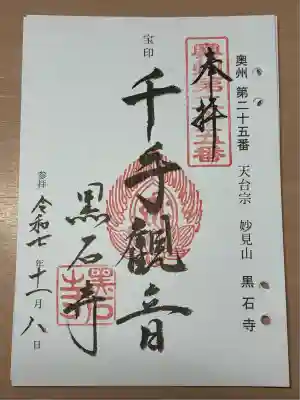 奥州 第二十五番 天台宗 妙見山 黒石寺
奉拝
奥州第二十五番
宝印
千手観音
黒石寺
黒石寺
参拝 令和七年十一月八日